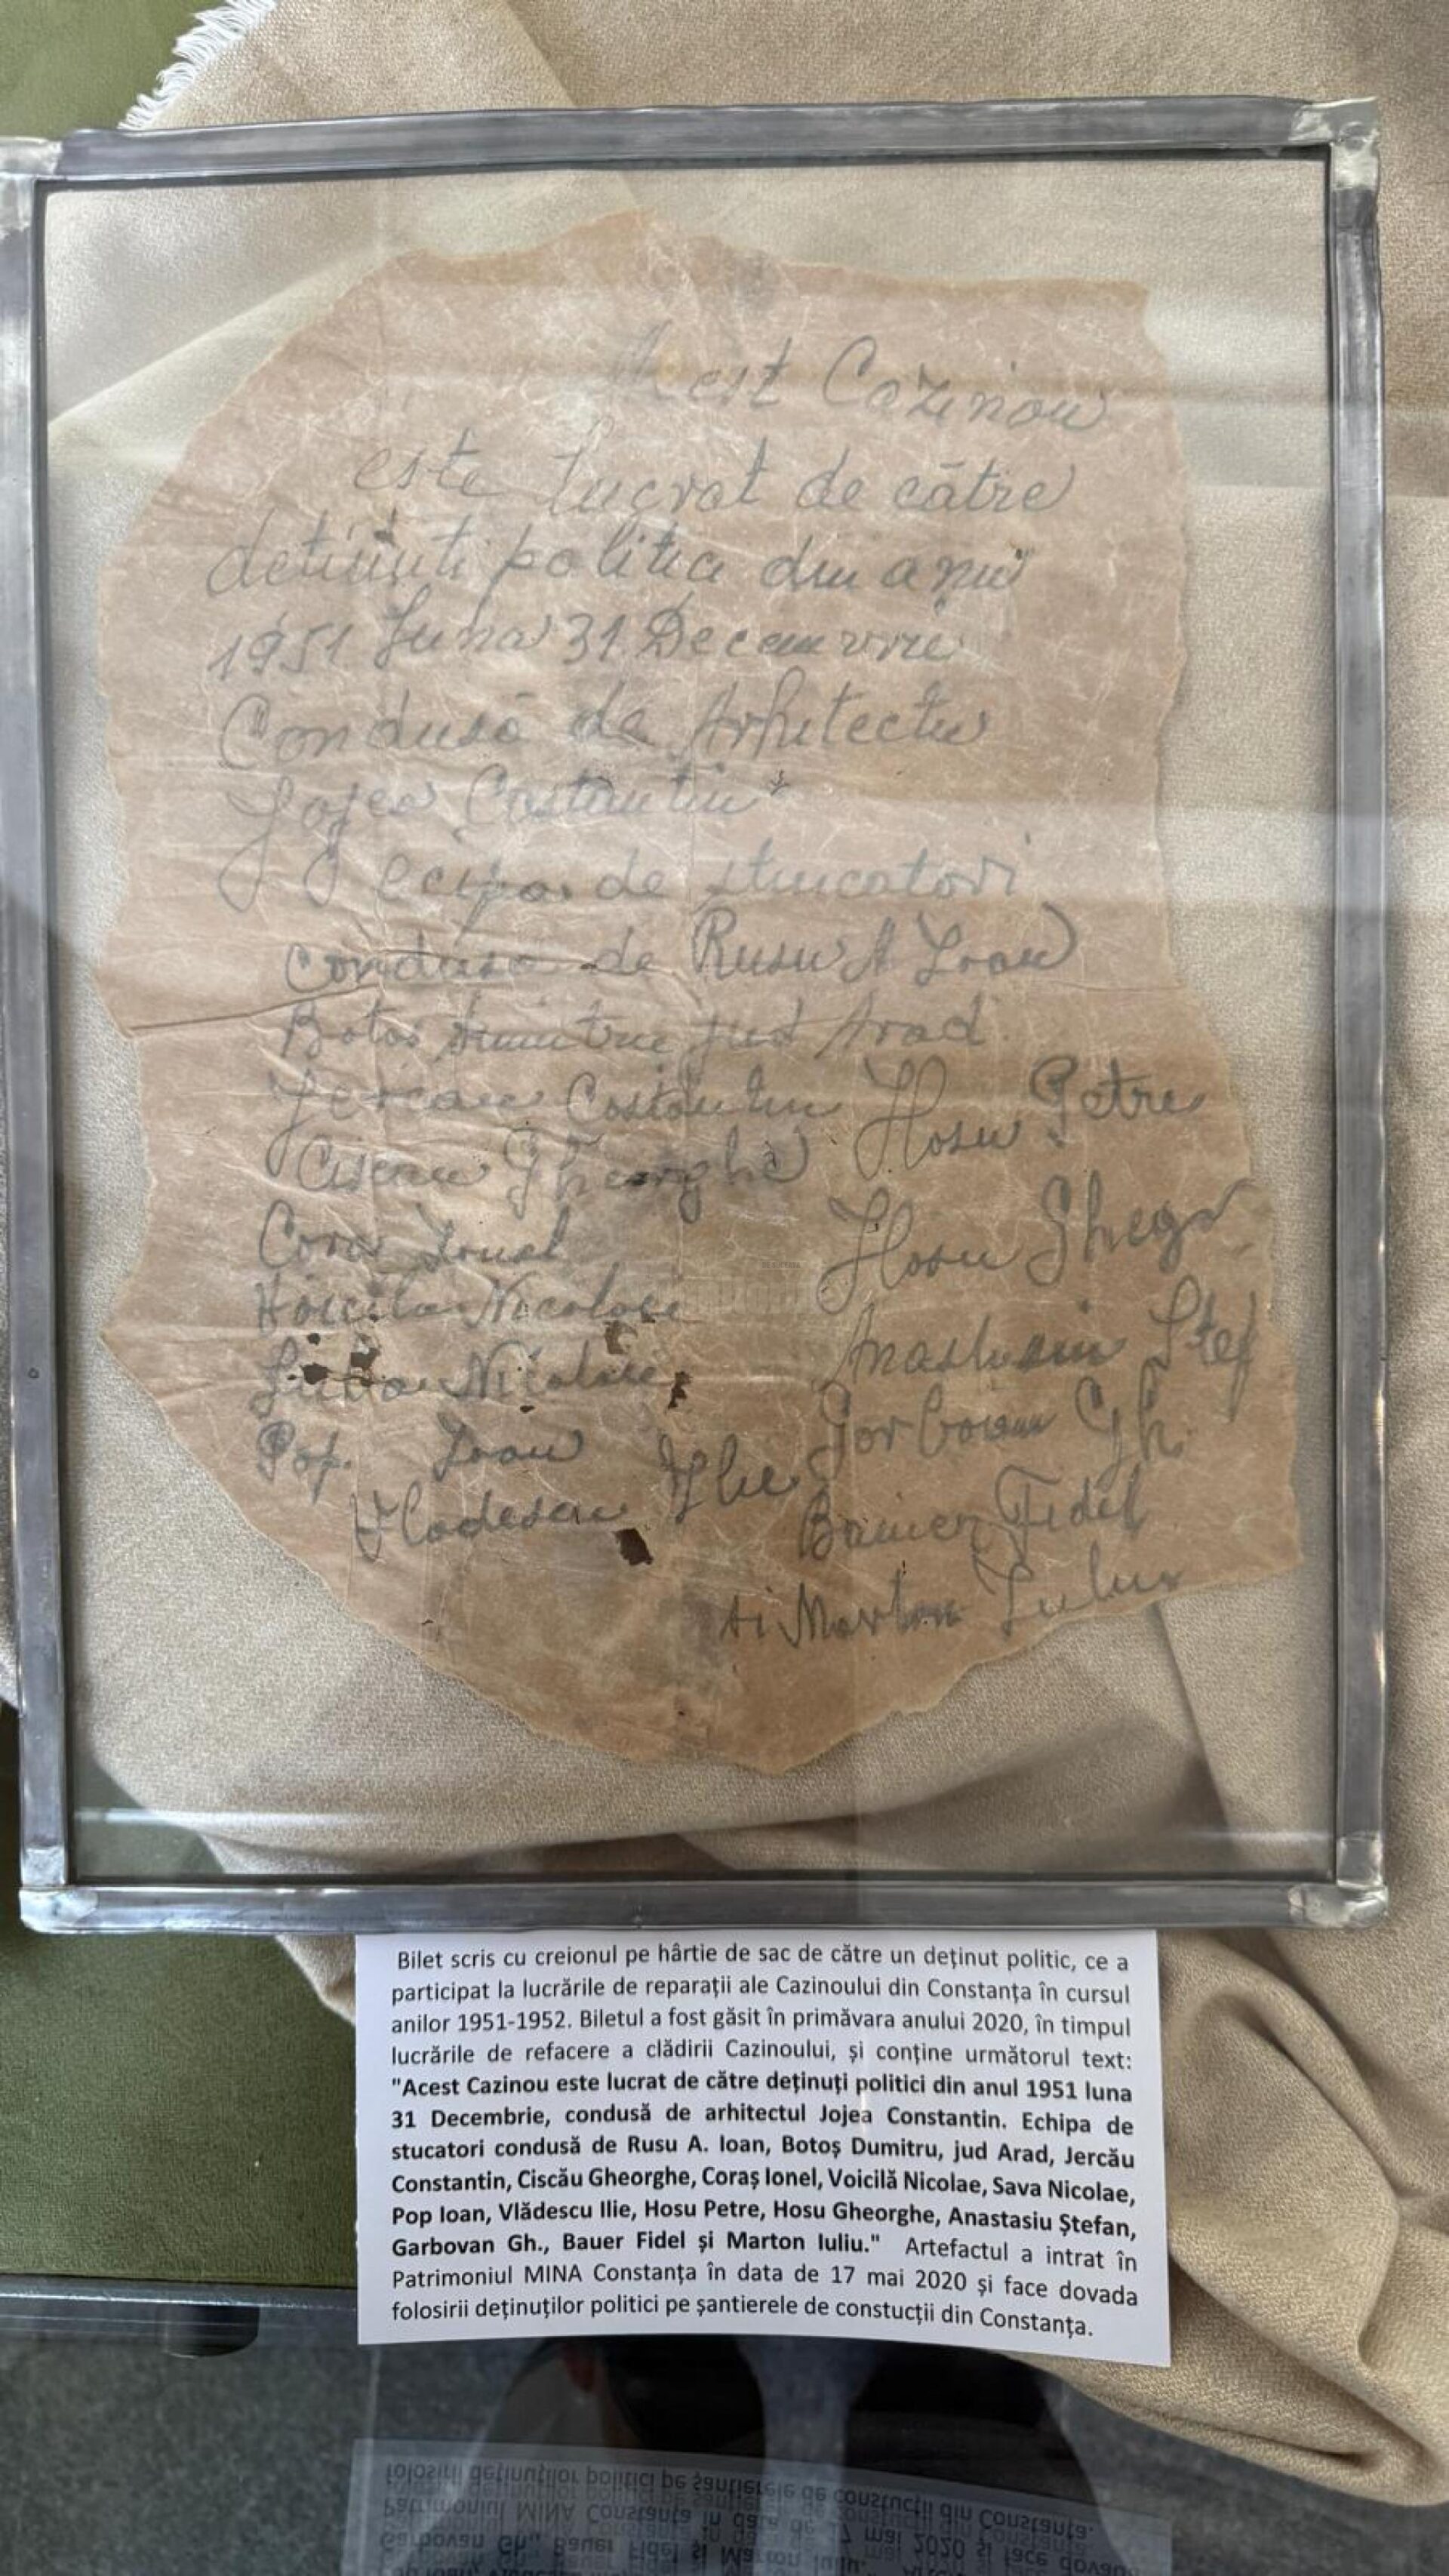 Acest Cazinou
este lucrat de către
detinuti politici din anul
1951 Luna 31 Decemvrie
Condusă de Arhitectul
Jojea Costantin
ecipa de stucatori
condusa de Rusu A Ioan
Botos Dumitru jud Arad
Jercau Costantin
Ciscau Gheorghe
Coras Ionel
Nicolae
Nicolaie
Pop. Ioan
Vladescu Ilie
Hosu Petre
Hosu Ghegr
Anastasiu Stef
Gorbovan Gh.
Fidel
si Marton Iuliu
Bilet scris cu creionul pe hârtie de sac de către un deținut politic, ce a
participat la lucrările de reparații ale Cazinoului din Constanța în cursul
anilor 1951-1952. Biletul a fost găsit în primăvara anului 2020, în timpul
lucrările de refacere a clădirii Cazinoului, și conține următorul text:
"Acest Cazinou este lucrat de către deținuți politici din anul 1951 luna
31 Decembrie, condusă de arhitectul Jojea Constantin. Echipa de
stucatori condusă de Rusu A. Ioan, Botoș Dumitru, jud Arad, Jercău
Constantin, Ciscău Gheorghe, Coraș Ionel, Voicilă Nicolae, Sava Nicolae,
Pop Ioan, Vlădescu Ilie, Hosu Petre, Hosu Gheorghe, Anastasiu Ștefan,
Garbovan Gh., Bauer Fidel și Marton Iuliu." Artefactul a intrat în
Patrimoniul MINA Constanța în data de 17 mai 2020 și face dovada
folosirii deținuților politici pe șantierele de constucții din Constanța.